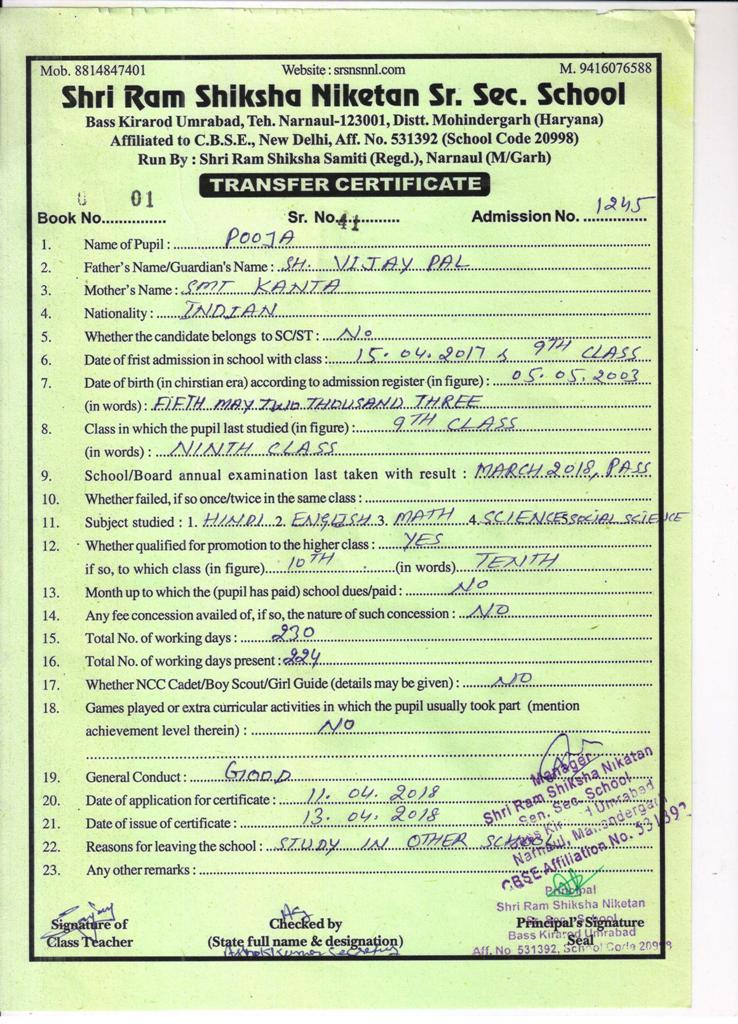 Mob. 8814847401 Website : srsnsnnl.com M. 9416076588
Shri Ram Shiksha Niketan Sr. Sec. School
Bass Kirarod Umrabad, Teh. Narnaul-123001, Distt. Mohindergarh (Haryana)
Affiliated to C.B.S.E., New Delhi, Aff. No. 531392 (School Code 20998)
Run By : Shri Ram Shiksha Samiti (Regd.), Narnaul (M/Garh)
TRANSFER CERTIFICATE
Book No. 01 Sr. No. 41 Admission No. 1245
1. Name of Pupil : POOJA
2. Father's Name/Guardian's Name : SH. VIJAY PAL
3. Mother's Name : SMT KANTA
4. Nationality : INDIAN
5. Whether the candidate belongs to SC/ST : No
6. Date of frist admission in school with class : 15.04.2017 & 9TH CLASS
7. Date of birth (in chirstian era) according to admission register (in figure) : 05.05.2003
(in words) : FIFTH MAY TWO THOUSAND THREE
8. Class in which the pupil last studied (in figure) : 9TH CLASS
(in words) : NINTH CLASS
9. School/Board annual examination last taken with result : MARCH 2018, PASS
10. Whether failed, if so once/twice in the same class :
11. Subject studied : 1. HINDI 2. ENGLISH 3. MATH 4. SCIENCE 5. SOCIAL SCIENCE
12. Whether qualified for promotion to the higher class : YES
if so, to which class (in figure) 10TH (in words) TENTH
13. Month up to which the (pupil has paid) school dues/paid : NO
14. Any fee concession availed of, if so, the nature of such concession : NO
15. Total No. of working days : 230
16. Total No. of working days present : 224
17. Whether NCC Cadet/Boy Scout/Girl Guide (details may be given) : NO
18. Games played or extra curricular activities in which the pupil usually took part (mention
achievement level therein) : NO
19. General Conduct : GOOD
20. Date of application for certificate : 11.04.2018
21. Date of issue of certificate : 13.04.2018
22. Reasons for leaving the school : STUDY IN OTHER SCHOOL
23. Any other remarks :
Manager
Shri Ram Shiksha Nikatan
Sen. Sec. School
Bass Umrabad
Narnaul, Mahendergarh
CBSE Affiliation No. 531392
Principal
Shri Ram Shiksha Niketan
Sr. Sec. School
Bass Kirarod Umrabad
Aff. No 531392, School Code 20998
Signature of Checked by Principal's Signature
Class Teacher (State full name & designation) Seal
Ashok Kumar Secretary